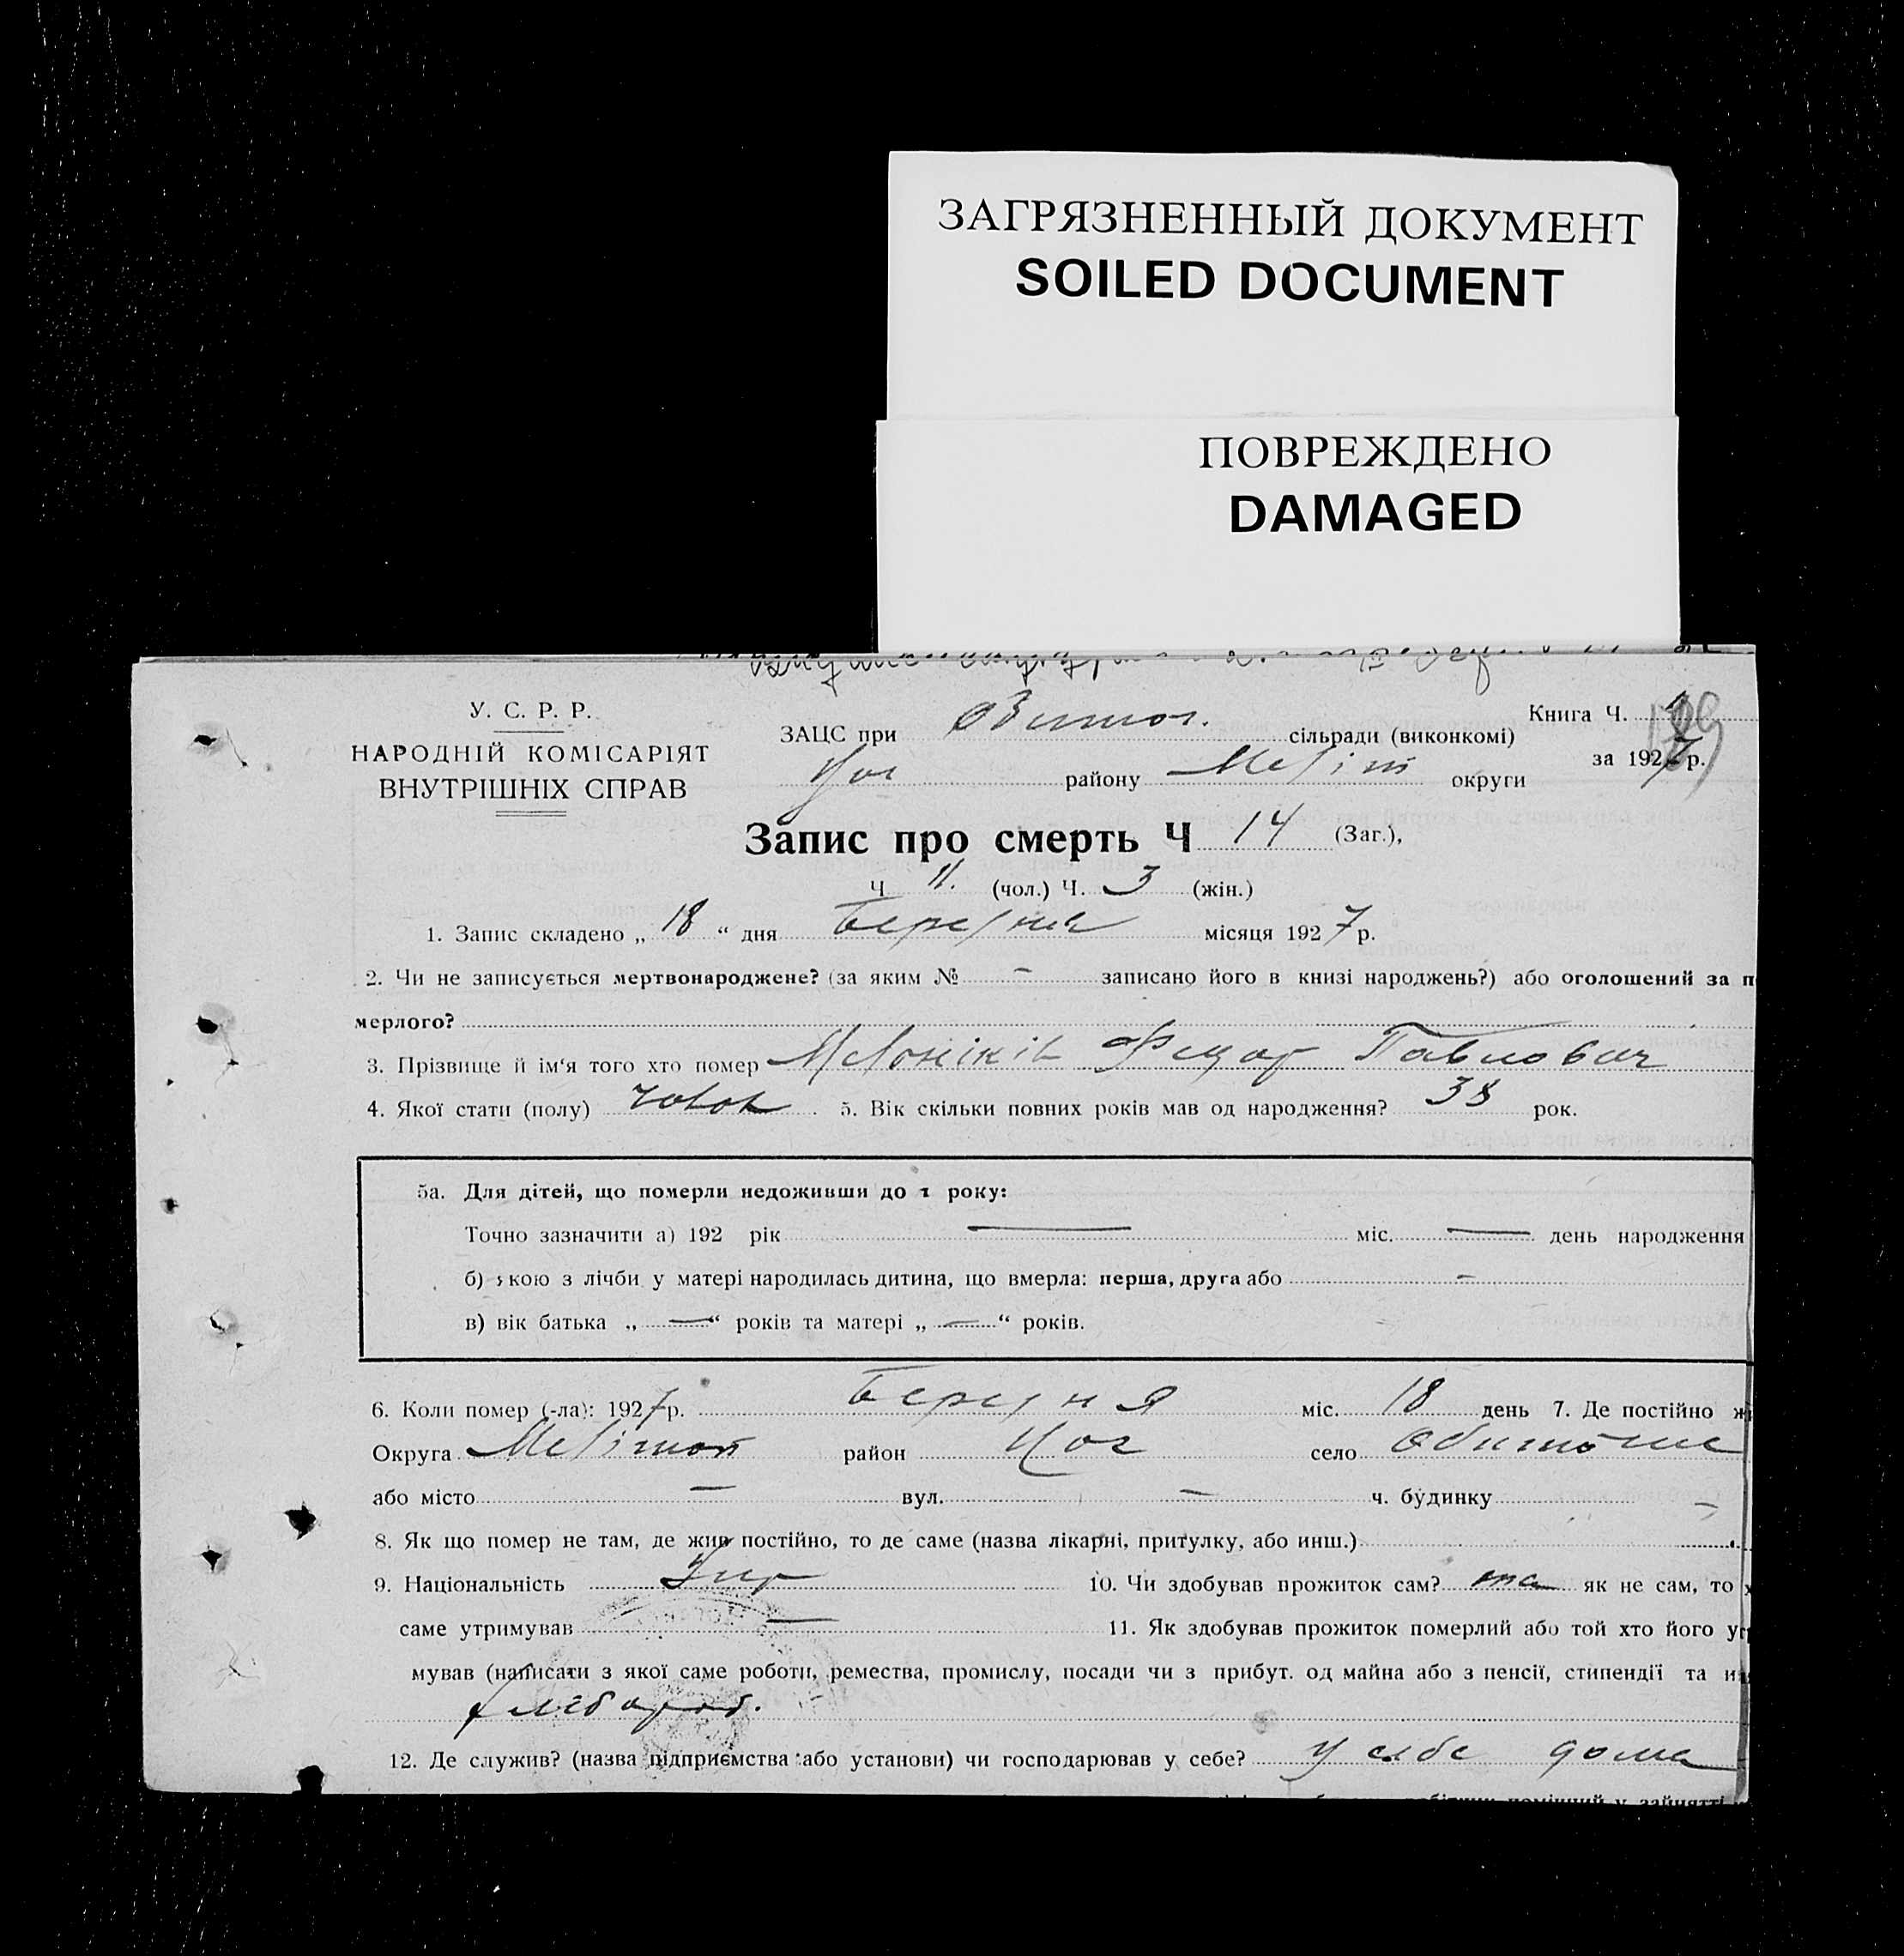 ЗАГРЯЗНЕННЫЙ ДОКУМЕНТ
SOILED DOCUMENT
ПОВРЕЖДЕНО
DAMAGED
У. С. Р. Р.
НАРОДНІЙ КОМІСАРІЯТ
ВНУТРІШНІХ СПРАВ
ЗАЦС при сільради (виконкомі)
Книга Ч.
району округи
за 1927 р.
Запис про смерть Ч 14 (Заг.),
Ч 11. (чол.) Ч. 3 (жін.)
1. Запис складено „ 18 “ дня Березня місяця 1927 р.
2. Чи не записується мертвонароджене? (за яким № – записано його в книзі народжень?) або оголошений за п
мерлого?
3. Прізвище й ім‘я того хто помер Павлович
4. Якої стати (полу) чолов 5. Вік скільки повних років мав од народження? 38 рок.
5а. Для дітей, що померли недоживши до 1 року:
Точно зазначити а) 192 рік — міс. — день народження
б) якою з лічби у матері народилась дитина, що вмерла: перша, друга або –
в) вік батька „ — “ років та матері „ — “ років.
6. Коли помер (-ла): 1927 р. Березня міс. 18 день 7. Де постійно жи
Округа Меліт район село
або місто — вул. — ч. будинку –
8. Як що помер не там, де жив постійно, то де саме (назва лікарні, притулку, або инш.)
9. Національність Укр 10. Чи здобував прожиток сам? та як не сам, то х
саме утримував — 11. Як здобував прожиток померлий або той хто його ут
мував (написати з якої саме роботи, ремества, промислу, посади чи з прибут. од майна або з пенсії, стипендії та и
хлібороб.
12. Де служив? (назва підприємства або установи) чи господарював у себе? у себе дома